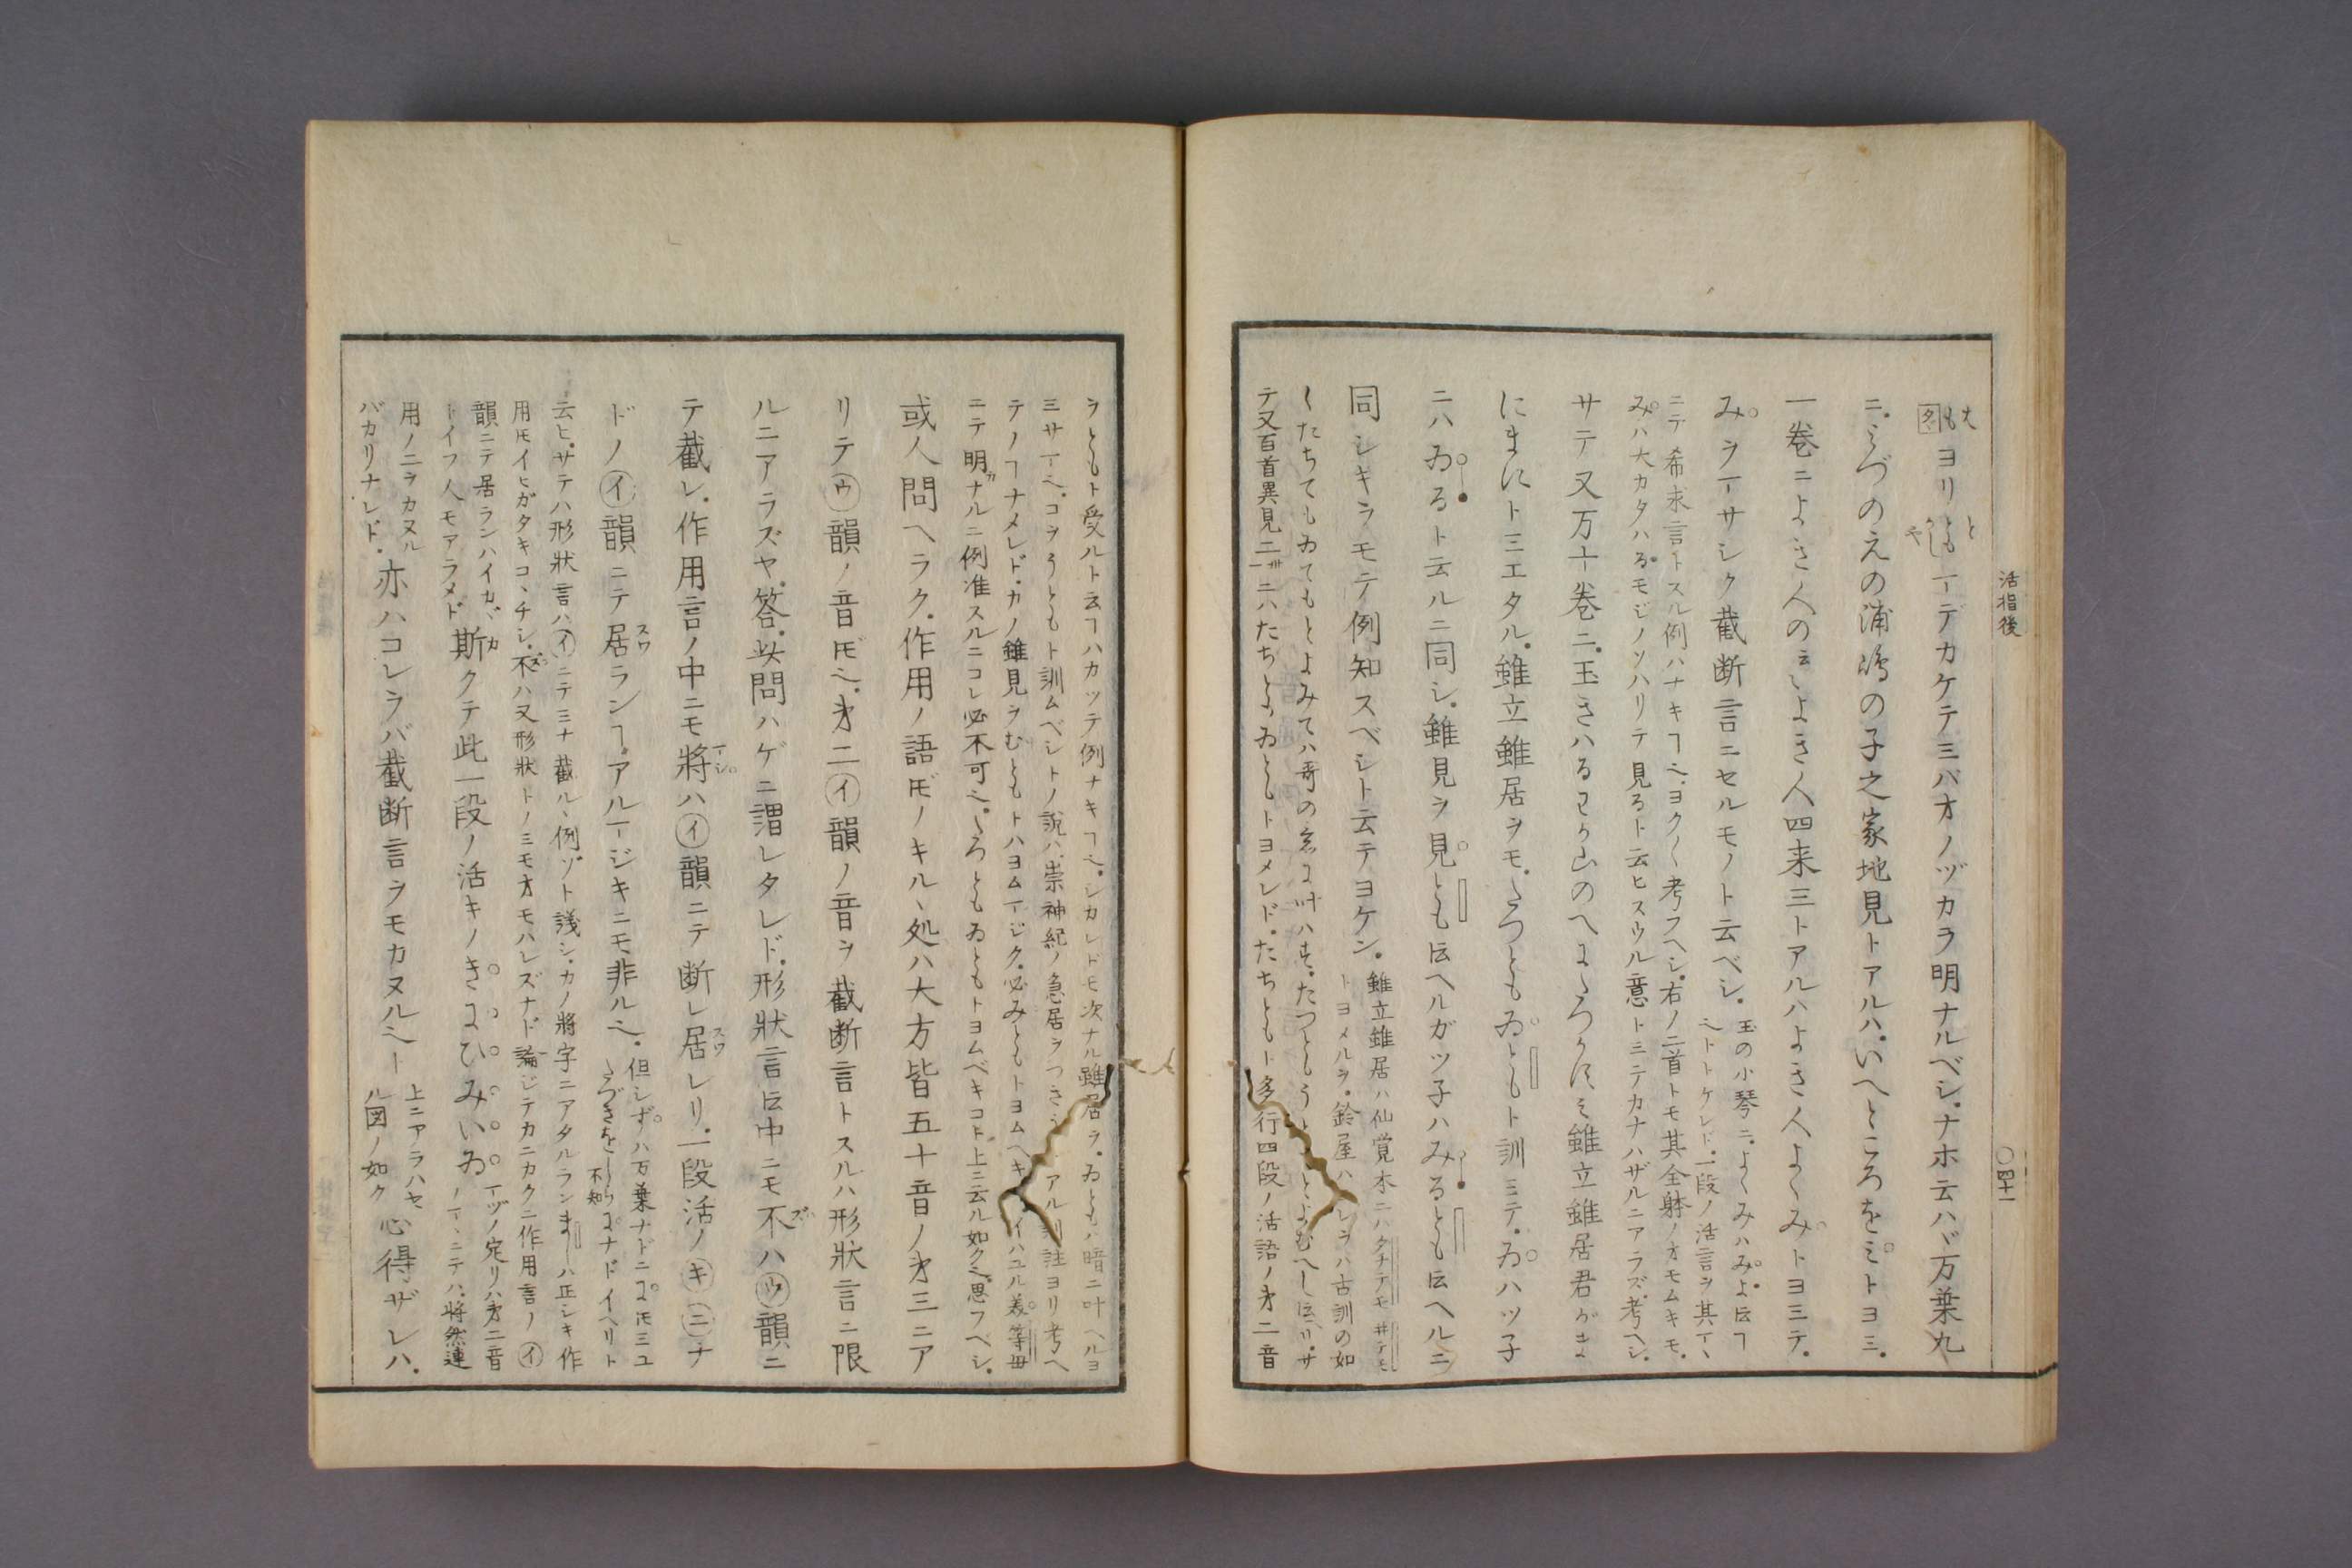 活指後
〇四十一
ヨリとも𪜈デカケテ三バオノヅカラ明ナルベシ.ナホ云ハヾ万葉九
ニ.みづのえの浦嶋の子之家地見トアルハ.いへところをミトヨミ.
一巻ニよき人のよしよき人四来三トアルハよき人よくみトヨミテ.
みヲマサシク截断言ニセルモノト云ベシ.
玉の小琴ニ.よくみハみよ𪜈ヿ
ヘトトケレド.一段ノ活言ヲ其マヽ
ニテ希求言トスル例ハナキヿ也.ヨク〱考フヘシ.右ノ二首トモ其全躰ノオモムキモ.
みハ大カタハるモジノソハリテ見るト云ヒスウル意トミテカナハザルニアラズ.考ヘシ.
サテ又万十巻ニ.玉きハるわか山のへにたつかすミ雖立雖居君がま
にまにトミエタル.雖立雖居ヲモ.たつともゐともト訓ミテ.ゐハツ子
ニハゐるト云ルニ同シ.雖見ヲ見とも𪜈ヘルガツ子ハみるとも𪜈ヘルニ
同シキヲモテ例知スベシト云テヨケン.
雖立雖居ハ仙覚本ニハタチテモ井テモ
トヨメルヲ.鈴屋ハ レヲハ古訓の如
くたちてもゐてもとよみてハ哥の意に叶ハす.たつともう とよむへし𪜈リ.サ
テ又百首異見二ニハたちとゐともトヨメレド.たちともト多行四段ノ活語ノ才二音
ヲともト受ルト云ヿハカツテ例ナキヿ也.シカレドモ次ナル雖居ヲ.ゐともハ暗ニ叶ヘルヨ
ミサマ也.コヲうともト訓ムベシトノ説ハ.崇神紀ノ急居ヲつきう アル訓註ヨリ考ヘ
テノヿナメレド.カノ雖見ヲむともトハヨムマジク.必みともトヨムヘキ イハユル義等毋
ニテ明ナルニ例准スルニコレ必不可也.たろともゐともトヨムベキコト上ニ云ル如ク也.思フベシ.
或人問ヘラク.作用ノ語𪜈ノキルヽ処ハ大方皆五十音ノ才三ニア
リテウ韻ノ音𪜈也.才二イ韻ノ音ヲ截断言トスルハ形状言ニ限
ルニアラズヤ.答.此問ハゲニ謂レタレド.形状言𪜈中ニモ不ハウ韻ニ
テ截レ.作用言ノ中ニモ将ハイ韻ニテ断レ居レリ.一段活ノキニナ
ドノイ韻ニテ居ランヿ.アルマジキニモ非ル也.
但しずハ万葉ナドニに𪜈ミユ
たづきをしらに不知ナドイヘリト
云ヒ.サテハ形状言ハイニテミナ截ルヽ例ゾト議シ.カノ将字ニアタルランましハ正シキ作
用𪜈イヒガタキコヽチシ.不ハ又形状トノミモオモハレズナド論ジテカニカクニ作用言ノイ
韻ニテ居ランハイカヾ
トイフ人モアラメド
斯クテ此一段ノ活キノきにひみいゐ
マヅノ定リハ才二音
ノマヽニテハ.将然連
用ノ二ヲカヌル
バカリナレド.
亦ハコレラバ截断言ヲモカヌル也ト
上ニアラハセ
ル図ノ如ク
心得ザレハ.